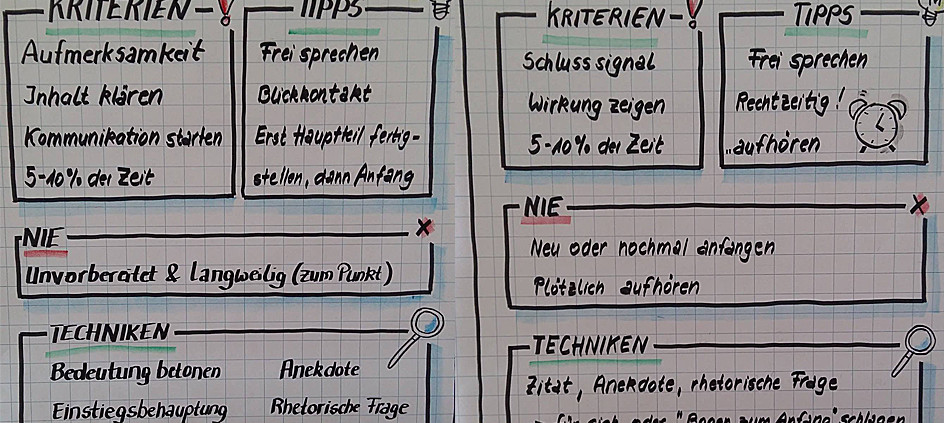 KRITERIEN - !
Aufmerksamkeit
Inhalt klären
Kommunikation starten
5-10% der Zeit
TIPPS
Frei sprechen
Blickkontakt
Erst Hauptteil fertig-
stellen, dann Anfang
NIE
Unvorbereitet & Langweilig (zum Punkt)
TECHNIKEN
Bedeutung betonen
Anekdote
Einstiegsbehauptung
Rhetorische Frage
KRITERIEN - !
Schlusssignal
Wirkung zeigen
5-10% der Zeit
TIPPS
Frei sprechen
Rechtzeitig!
...aufhören
NIE
Neu oder nochmal anfangen
Plötzlich aufhören
TECHNIKEN
Zitat, Anekdote, rhetorische Frage
für sich oder "Bogen zum Anfang" schlagen